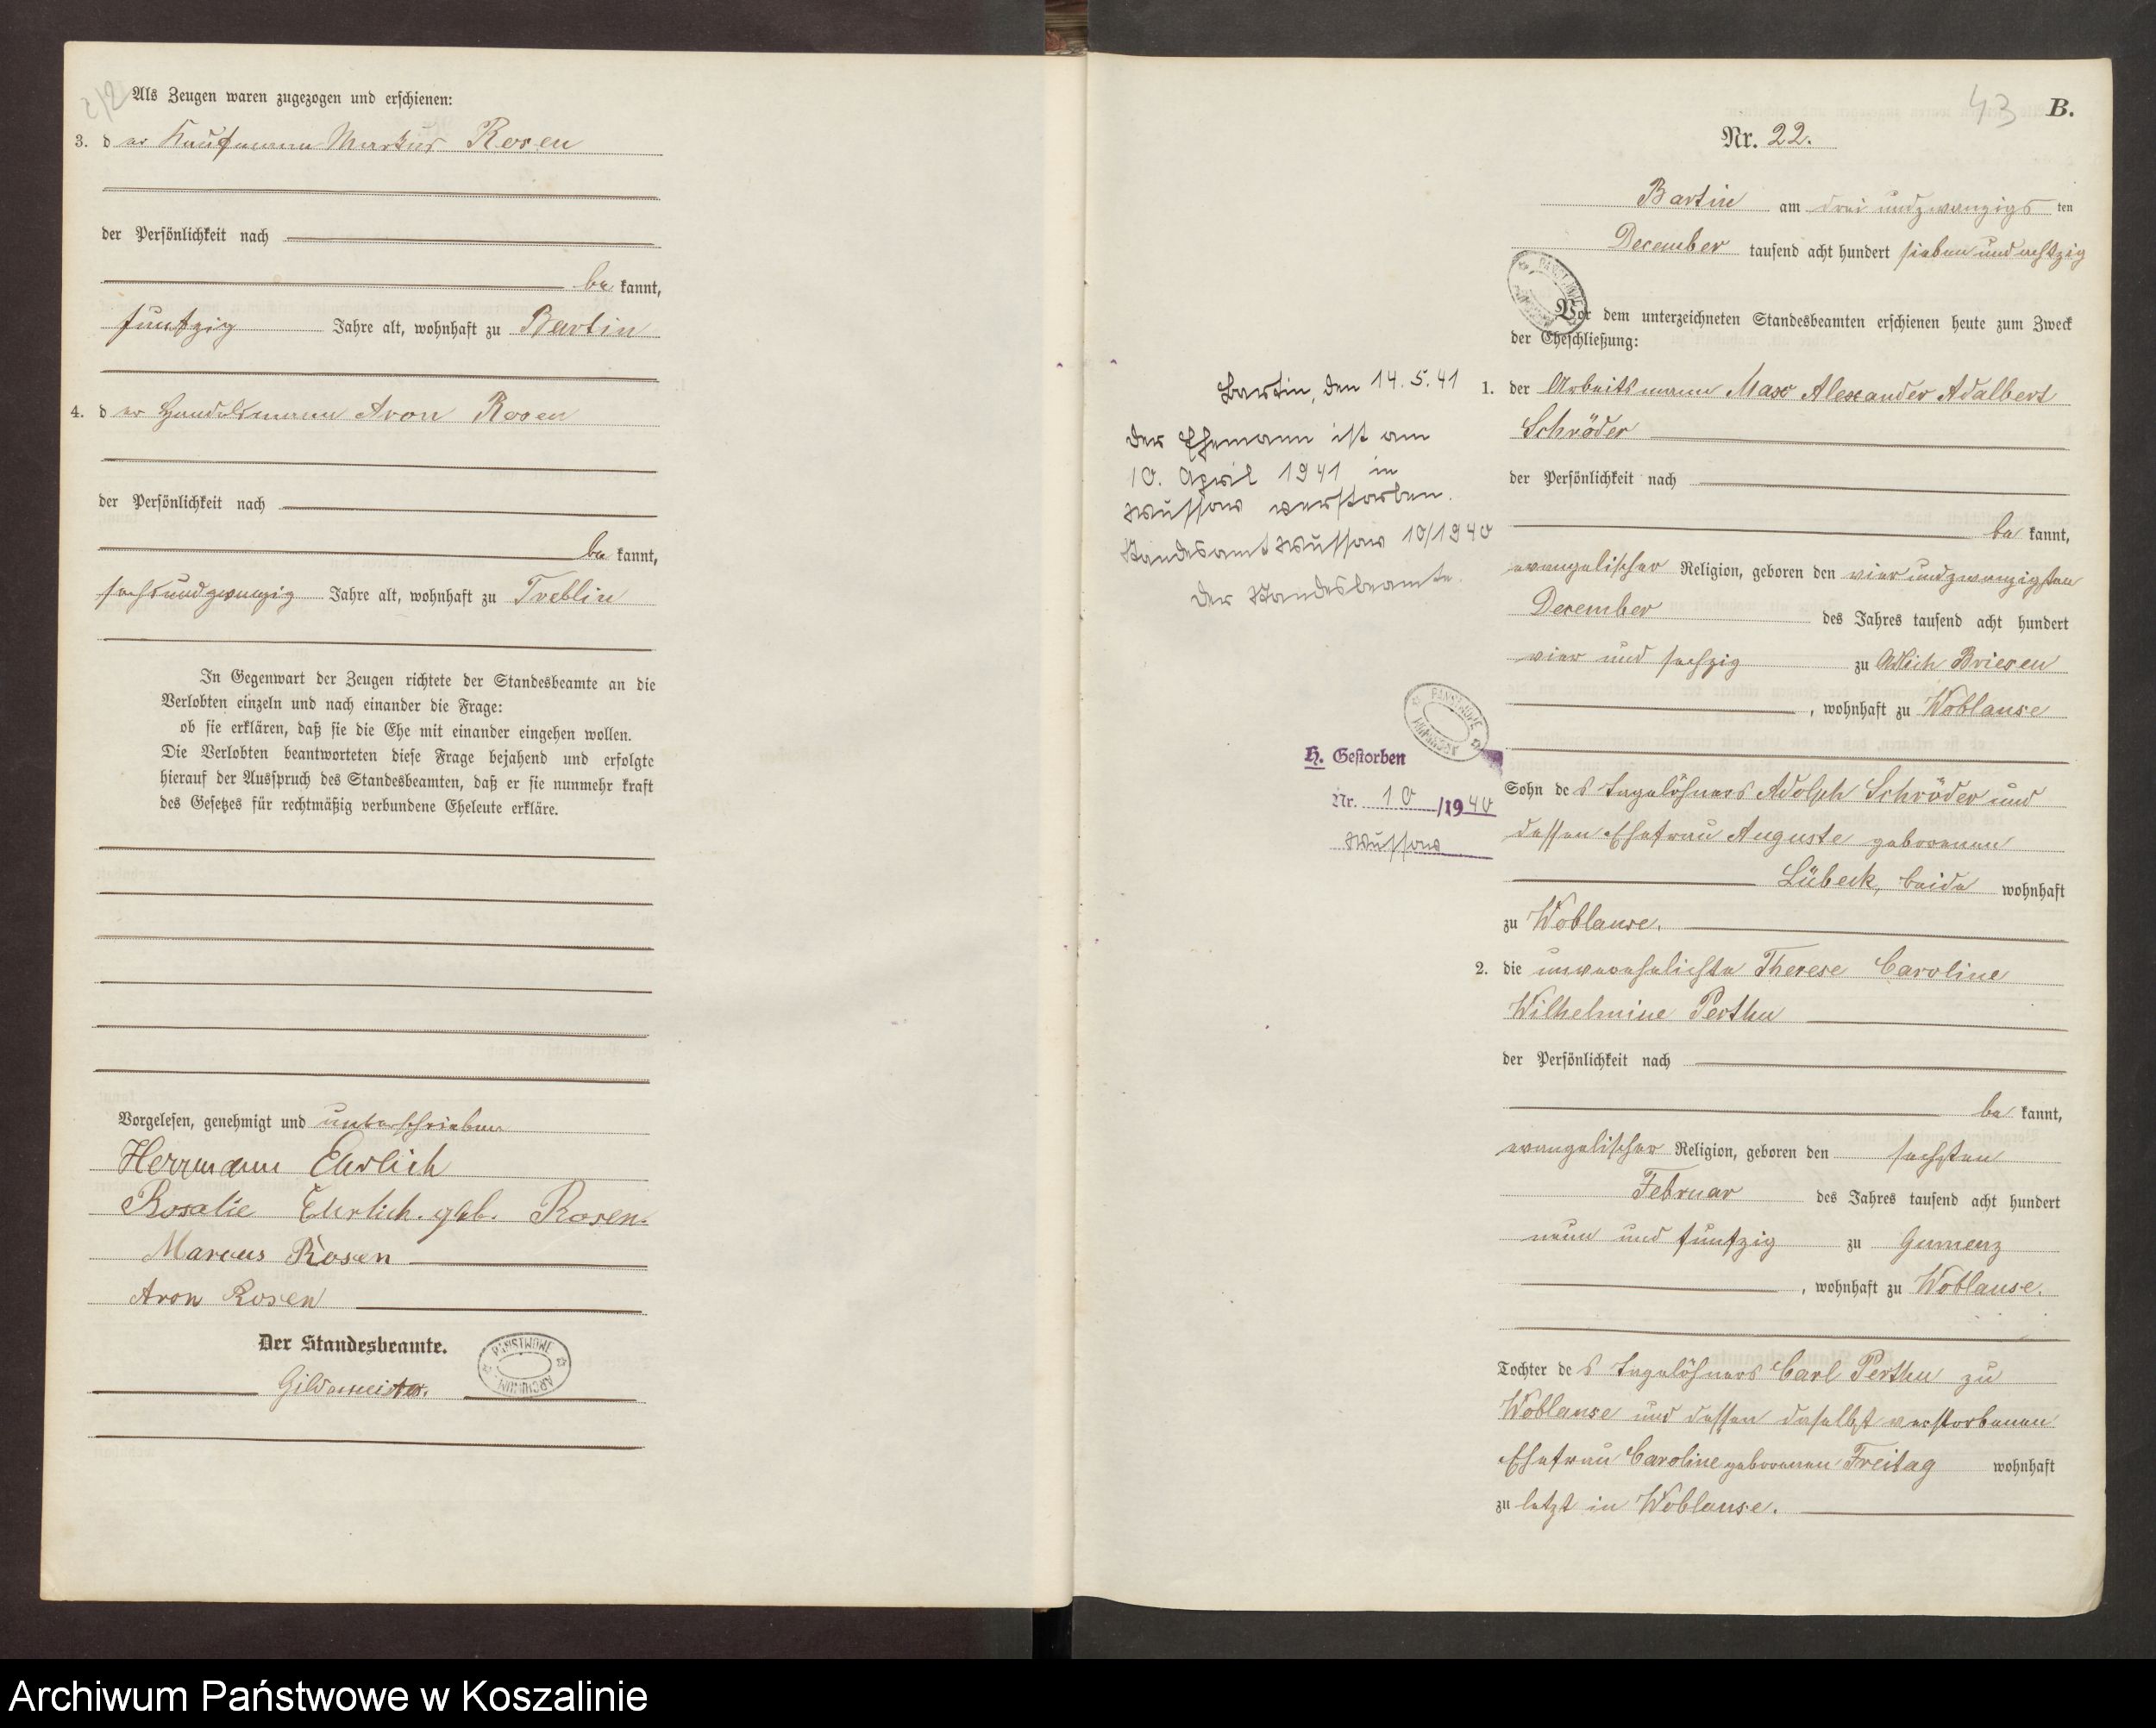 Als Zeugen waren zugezogen und erschienen:
3. der Kaufmann Markus Rosen
der Persönlichkeit nach
bekannt,
funfzig Jahre alt, wohnhaft zu Bartin
4. der Handelsmann Aron Rosen
der Persönlichkeit nach
bekannt,
sechsundzwanzig Jahre alt, wohnhaft zu Treblin
In Gegenwart der Zeugen richtete der Standesbeamte an die
Verlobten einzeln und nach einander die Frage:
ob sie erklären, daß sie die Ehe mit einander eingehen wollen.
Die Verlobten beantworteten diese Frage bejahend und erfolgte
hierauf der Ausspruch des Standesbeamten, daß er sie nunmehr kraft
des Gesetzes für rechtmäßig verbundene Eheleute erkläre.
Vorgelesen, genehmigt und unterschrieben
Herrmann Ehrlich
Rosalie Ehrlich. geb. Rosen.
Marcus Rosen
Aron Rosen
Der Standesbeamte.
Gildemeister.
PAŃSTWOWE ARCHIWUM
43 B.
Nr. 22.
Bartin am drei undzwanzigsten
December tausend acht hundert sieben und achtzig
PAŃSTWOWE ARCHIWUM
Vor dem unterzeichneten Standesbeamten erschienen heute zum Zweck
der Eheschließung:
1. der Arbeitsmann Max Alexander Adalbert
Schröder
der Persönlichkeit nach
bekannt,
evangelischer Religion, geboren den vier undzwanzigsten
December des Jahres tausend acht hundert
vier und sechzig zu Adlich Briesen
, wohnhaft zu Woblanse
Sohn des Tagelöhners Adolph Schröder und
dessen Ehefrau Auguste geborenen
Lübeck, beide wohnhaft
zu Woblanse.
2. die unverehelichte Therese Caroline
Wilhelmine Perthu
der Persönlichkeit nach
bekannt,
evangelischer Religion, geboren den sechsten
Februar des Jahres tausend acht hundert
neun und funfzig zu Gumenz
, wohnhaft zu Woblanse.
Tochter des Tagelöhners Carl Perthu zu
Woblanse und dessen daselbst verstorbenen
Ehefrau Caroline geborenen Freitag wohnhaft
zu letzt in Woblanse.
Bartin, den 14.5.41
Der Ehemann ist am
10. April 1941 in
Wussow verstorben.
Standesamt Wussow 10/1940
Der Standesbeamte.
PAŃSTWOWE ARCHIWUM
H. Gestorben
Nr. 10 /1940
Wussow
Archiwum Państwowe w Koszalinie